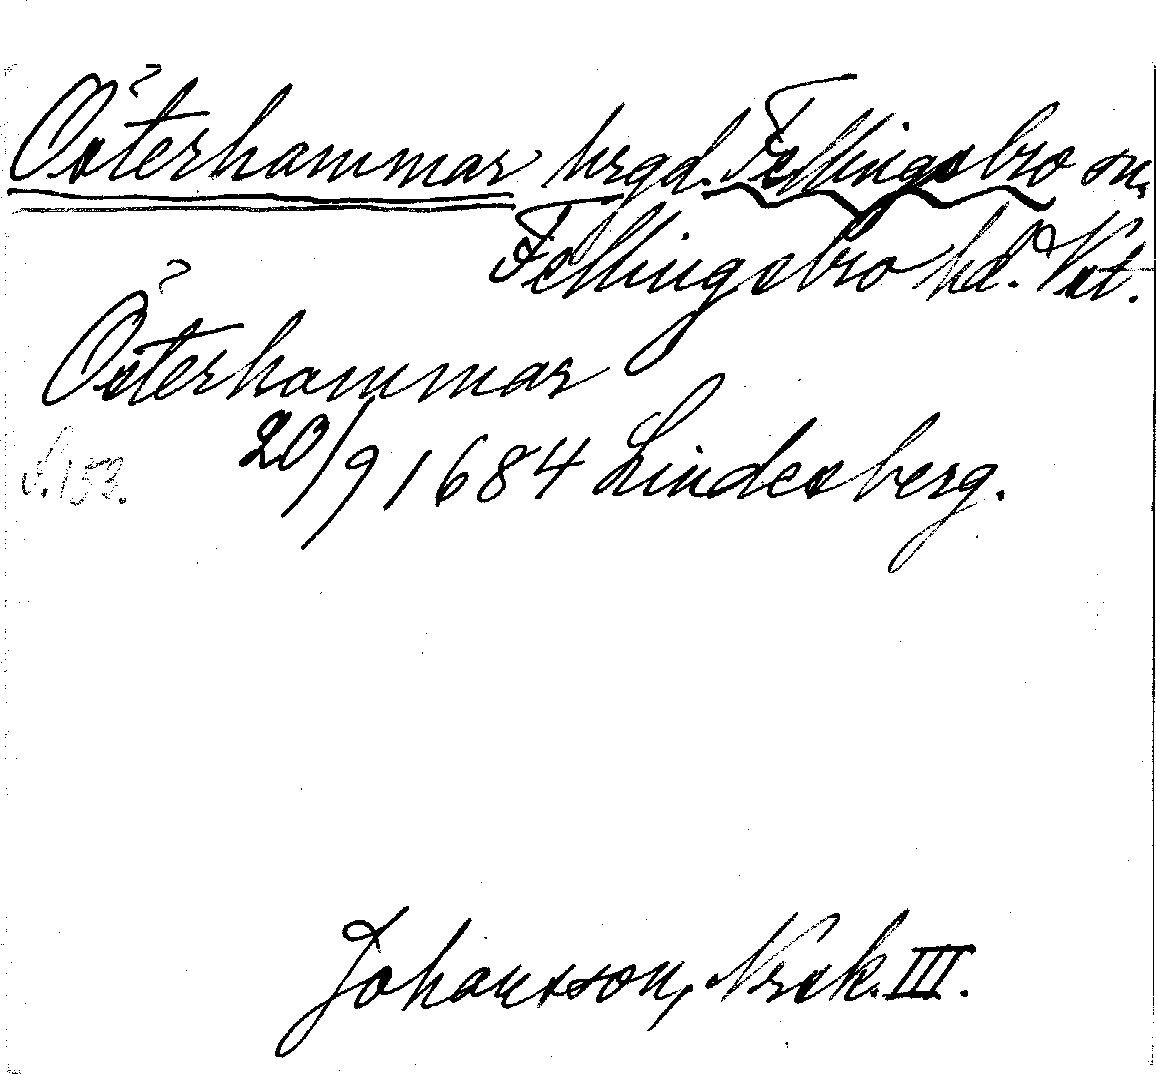 Österhammar hrgd. Fellingsbro sn.
Fellingsbro hd. Vst.
Österhammar
20/9 1684 Lindesberg.
S. 152.
Johansson, Nrsk. III.